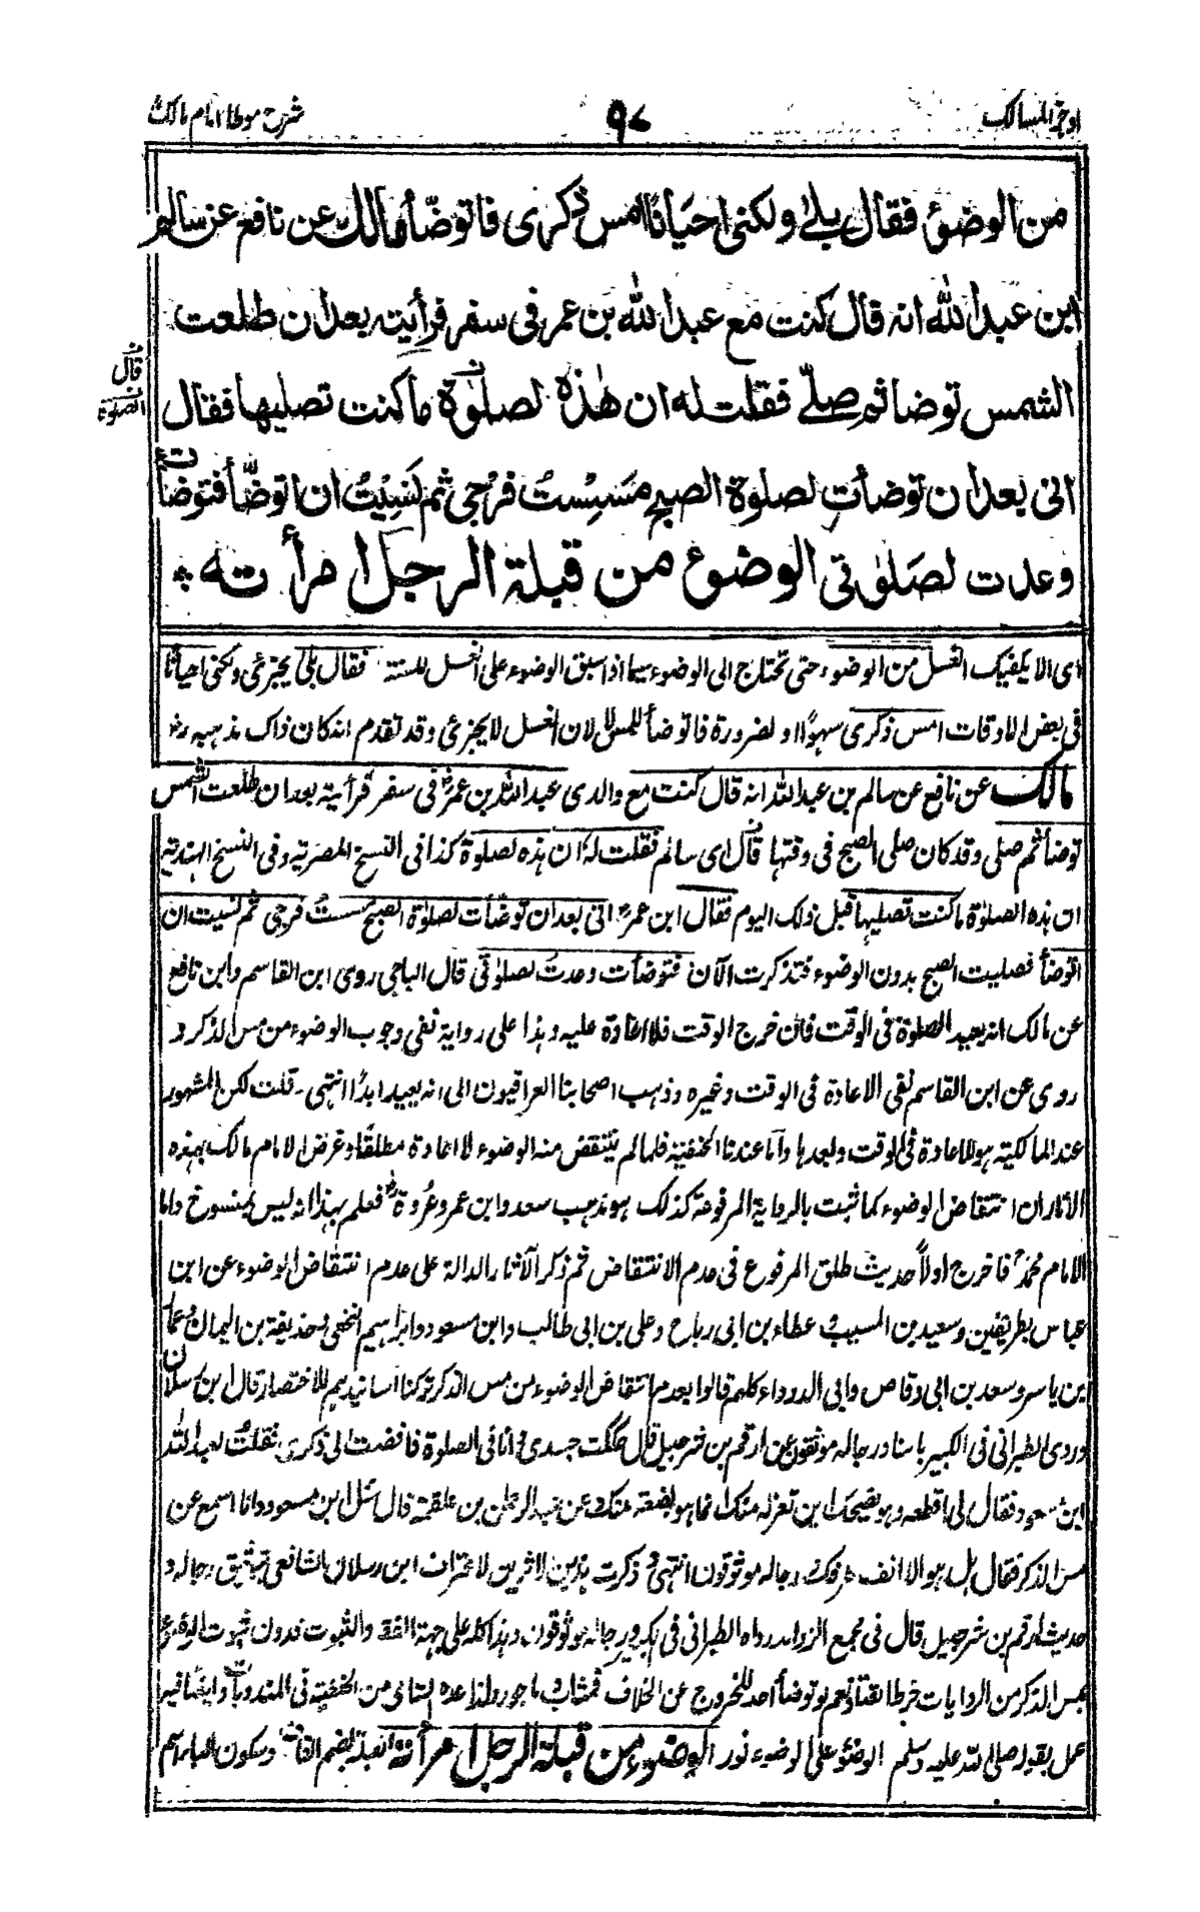 اوجز المسالك
٩٧
شرح موطا امام مالك
من الوضوء فقال بلى ولكنى احيانا امس ذكرى فاتوضأ مالك عن نافع عن سالم
ابن عبد الله انه قال كنت مع عبد الله بن عمر فى سفر فرأيته بعد ان طلعت
الشمس توضأ ثم صلى فقلت له ان هذه لصلوة ما كنت تصليها فقال
انى بعد ان توضأت لصلوة الصبح مَسِسْتُ فَرْجى ثم نَسِيْتُ ان اتوضَّأ فتوضأت
وعدت لصَلوٰتى الوضوء من قبلة الرجل امرأته
ن قال
ن الصلوة
اى الا يكفيك الغسل من الوضوء حتى تحتاج الى الوضوء سيما اذا سبق الوضوء على الغسل للسنة فقال بلى يجزئ ولكنى احيانا
فى بعض الاوقات امس ذكرى سهوًا او لضرورة فاتوضأ للمس لا لان الغسل لا يجزئ وقد تقدم انه كان ذاك مذهبه رض
مالك عن نافع عن سالم بن عبد الله انه قال كنت مع والدى عبد الله بن عمر فى سفر فرأيته بعد ان طلعت الشمس
توضأ ثم صلى وقد كان صلى الصبح فى وقتها قال اى سالم فقلت له ان هذه لصلوة كذا فى النسخ المصرية وفى النسخ الهندية
ان هذه الصلوة ما كنت تصليها قبل ذلك اليوم فقال ابن عمر انى بعد ان توضأت لصلوة الصبح مسست فرجى ثم نسيت ان
اتوضأ فصليت الصبح بدون الوضوء فتذكرت الآن فتوضأت وعدت لصلوتى قال الباجى روى ابن القاسم وابن نافع
عن مالك انه يعيد الصلوة فى الوقت فان خرج الوقت فلا اعادة عليه وهذا على رواية نفى وجوب الوضوء من مس الذكر و
روى عن ابن القاسم نفى الاعادة فى الوقت وغيره وذهب اصحابنا العراقيون الى انه يعيد ابدًا انتهى ۔ قلت لكن المشهور
عند المالكية هو الاعادة فى الوقت وبعدها وأما عندنا الحنفية فلما لم ينتقض منه الوضوء لا اعادة مطلقا وغرض الامام مالك بهذه
الآثار ان انتقاض الوضوء كما ثبت بالرواية المرفوعة كذلك هو مذهب سعد وابن عمر وعروة فعلم بهذا انه ليس بمنسوخ واما
الامام محمد فاخرج اولاً حديث طلق المرفوع فى عدم الانتقاض ثم ذكر الآثار الدالة على عدم انتقاض الوضوء عن ابن
عباس بطريقين وسعيد بن المسيب وعطاء بن ابى رباح وعلى بن ابى طالب وابن مسعود وابراهيم النخعى وحذيفة بن اليمان وعمار
بن ياسر وسعد بن ابى وقاص وابى الدرداء كلهم قالوا بعدم انتقاض الوضوء من مس الذكر تركنا اسانيدهم للاختصار قال ابن رسلان
وروى الطبرانى فى الكبير باسناد رجاله موثقون عن ارقم بن شرحبيل قال حككت جسدى وانا فى الصلوة فافضت الى ذكرى فقلت لعبد الله
ابن مسعود فقال لى اقطعه وهو يضحك اين تعزله منك انما هو بضعة منك عن عبد الرحمن بن علقمة قال سئل ابن مسعود وانا اسمع عن
مس الذكر فقال هل هو الا كطرف انفك رجاله موثوقون انتهى ذكرت هذين الاثرين لاعتراف ابن رسلان الشافعى بتوثيق رجاله و
حديث ارقم بن شرحبيل قال فى مجمع الزوائد رواه الطبرانى فى الكبير ورجاله موثوقون وهذا كله على جهة الفقه والثبوت فدون ثبوت الوضوء
بمس الذكر من الروايات خرط القتاد نعم لو توضأ احد للخروج عن الخلاف فمثاب ماجور ولذا عده الشامى من الحنفية فى المندوبات وايضا فيه
عمل بقوله صلى الله عليه وسلم الوضوء على الوضوء نور الوضوء من قبلة الرجل امرأته القبلة بضم القاف وسكون الباء اسم